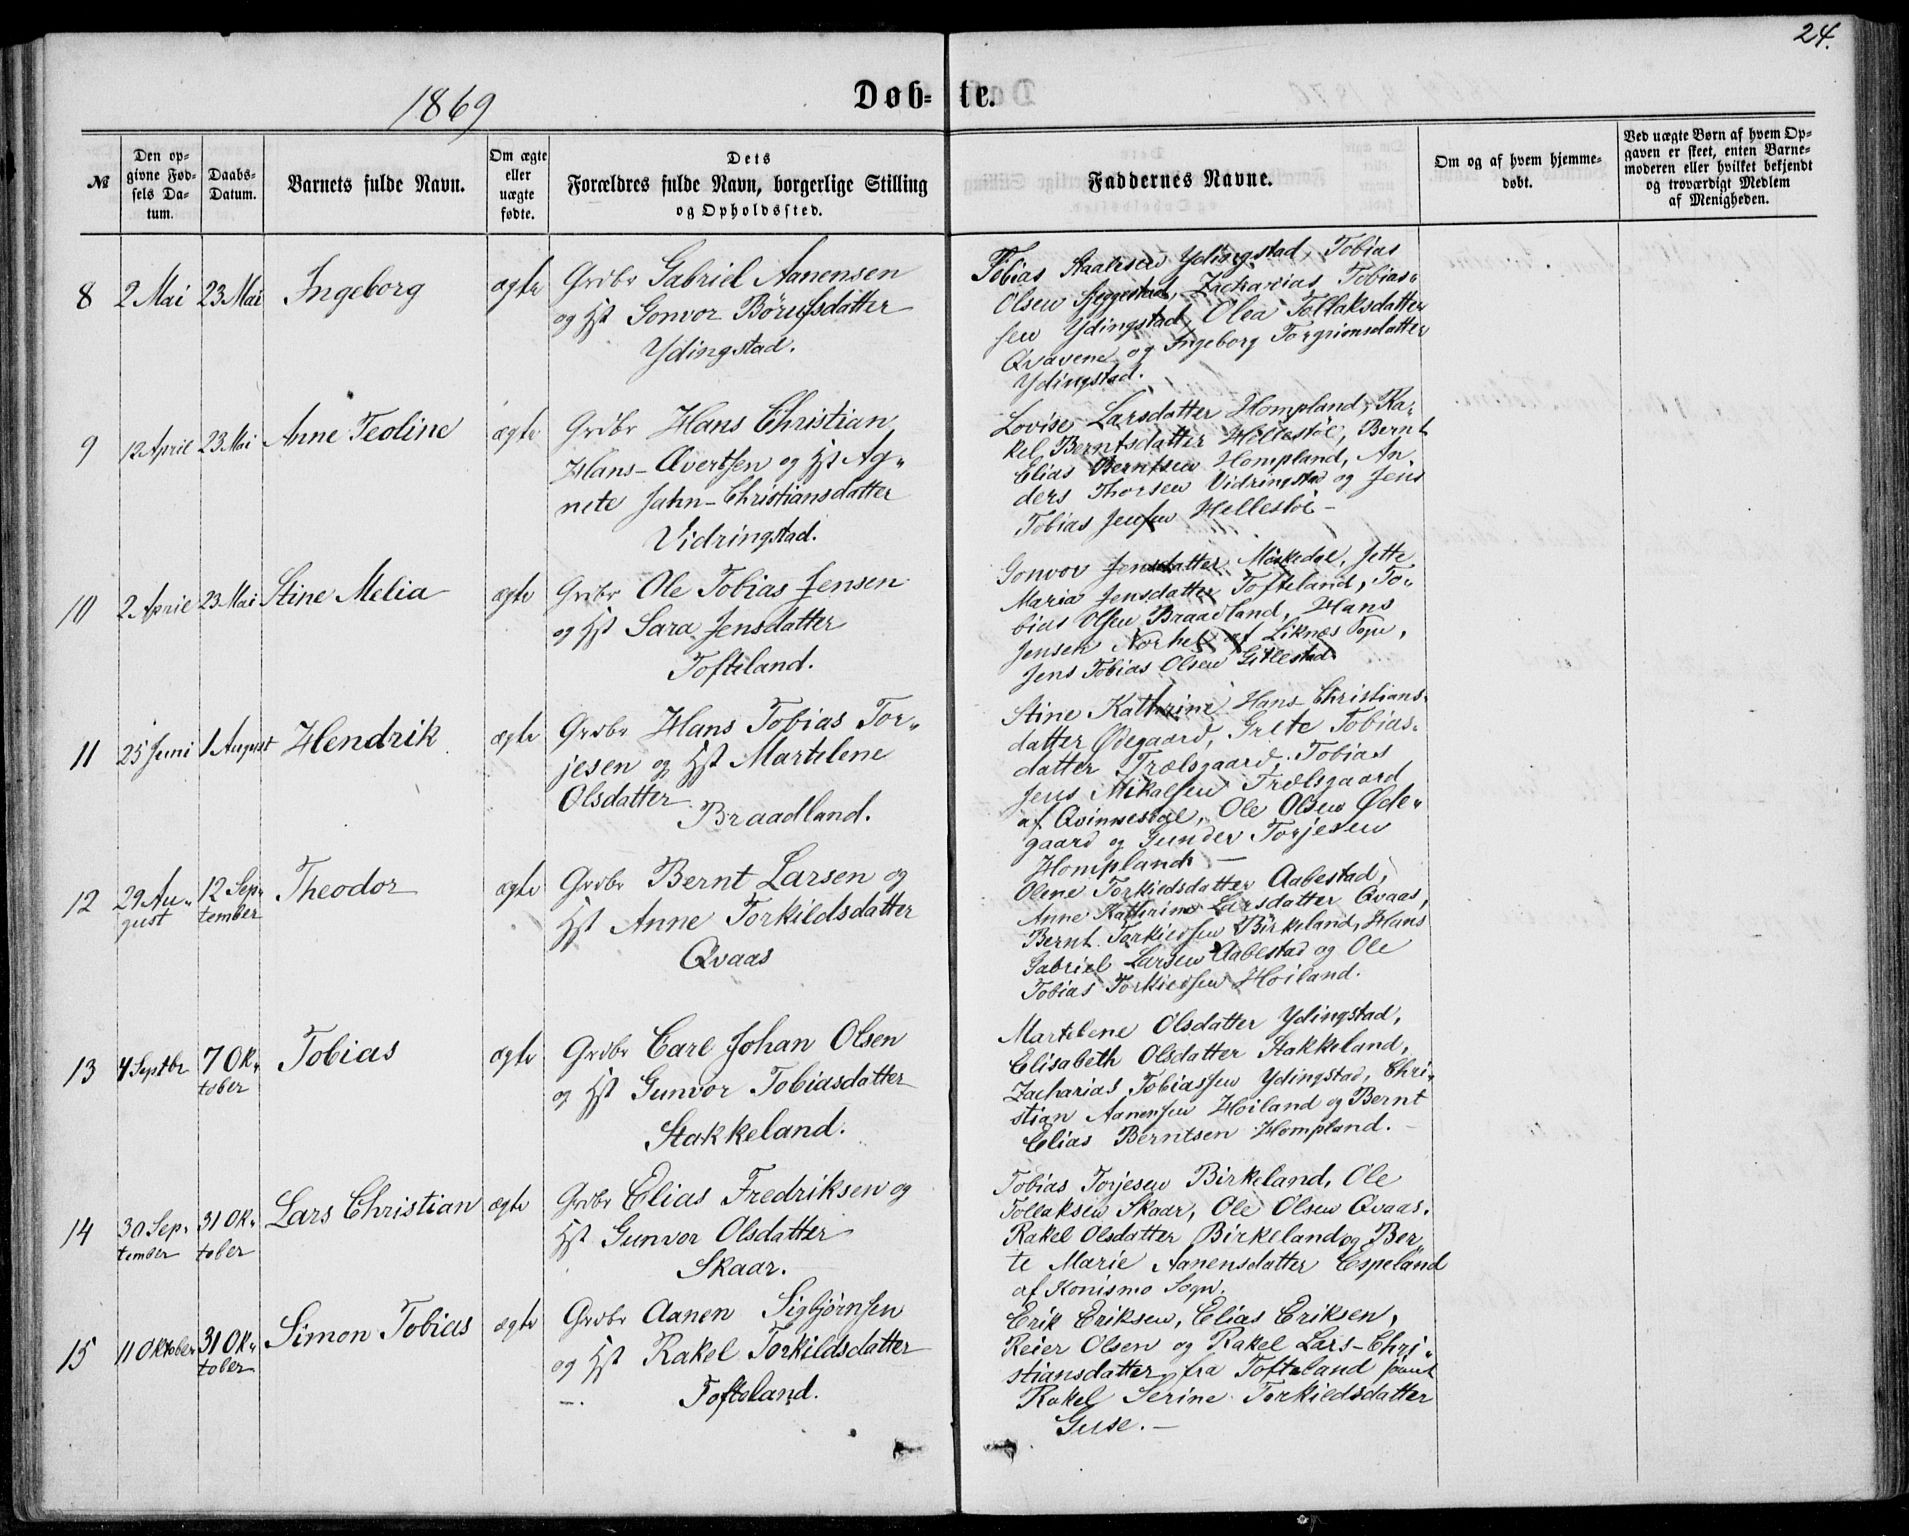 24.
1869
Døb- te.
№
Den op-
givne Fød-
sels Da-
tum.
Daabs-
Datum.
Barnets fulde Navn.
Om ægte
eller
uægte
fødte.
Dets
Forældres fulde Navn, borgerlige Stilling
og Opholdssted.
Faddernes Navne.
Om og af hvem hjemme-
døbt.
Ved uægte Børn af hvem Op-
gaven er skeet, enten Barne-
moderen eller hvilket bekjendt
og troværdigt Medlem
af Menigheden.
8
2 Mai
23 Mai
Ingeborg
ægte
Grdbr Gabriel Aanensen
og Hst Gonvor Börufsdatter
Ydingstad.
Tobias Ydingstad, Tobias
Olsen Zacharias Tobias-
sen Ydingstad, Olea Tollaksdatter
Qvavene og Ingeborg Torgrimsdatter
Ydingstad.
9
12 April
23 Mai
Anne Teoline
ægte
Grdbr Hans Christian
Hans-Evertsen og Hst Ag-
nete Jahn-Christiansdatter
Vidringstad.
Lovise Larsdatter Hompland, Ra-
kel Berntsdatter Hellestöl, Bernt
Elias Berntsen Hompland, An
ders Thorsen Vidringstad og Jens
Tobias Jensen Hellestöl -
10
2 April
23 Mai
Stine Melia
ægte
Grdbr Ole Tobias Jensen
og Hst Sara Jensdatter
Tofteland.
Gonvor Jensdatter Möskedal, Jette
Maria Jensdatter Tofteland, To-
bias Olsen Braadland, Hans
Jensen af Liknæs Sogn,
Jens Tobias Olsen Gitlestad
11
25 Juni
1 August
Hendrik
ægte
Grdbr Hans Tobias Tor-
jesen og Hst Martelene
Olsdatter
Braadland.
Stine Kathrine Hans Christians-
datter Ødegaard, Grete Tobias-
datter Trælsgaard, Tobias
Jens Mikalsen Trælsgaard
af Qvinnesdal, Ole Olsen Øde-
gaard og Gunder Torjesen
Hompland -
12
29 Au-
gust
12 Sep-
tember
Theodor
ægte
Grdbr Bernt Larsen og
Hst Anne Torkildsdatter
Qvaas
Oline Torkildsdatter Aabestad,
Anne Kathrine Larsdatter Qvaas,
Bernt Torkildsen Birkeland, Hans
Gabriel Larsen Aabestad og Ole
Tobias Torkildsen Höiland.
13
4 Septbr
7 Ok-
tober
Tobias
ægte
Grdbr Carl Johan Olsen
og Hst Gunvor Tobiasdatter
Stakkeland.
Martelene Olsdatter Ydingstad,
Elisabeth Olsdatter Stakkeland,
Zacharias Tobiassen Ydingstad, Chri-
stian Aanensen Höiland og Bernt
Elias Berntsen Hompland. -
14
30 Sep-
tember
31 Ok-
tober
Lars Christian
ægte
Grdbr Elias Fredriksen og
Hst Gunvor Olsdatter
Skaar.
Tobias Torjesen Birkeland, Ole
Tollaksen Skaar, Ole Olsen Qvaas.
Rakel Olsdatter Birkeland og Ber
te Marie Aanensdatter Espeland
af Konismo Sogn.
15
11 Oktober
31 Ok-
tober
Simon Tobias
ægte
Grdbr Aanen Sigbjørnsen
og Hst Rakel Torkildsdatter
-. Tofteland.
Erik Eriksen, Elias Eriksen,
Reier Olsen og Rakel Lars-Chri-
stiansdatter fra Tofteland samt
Rakel Serine Torkildsdatter
Guse. -